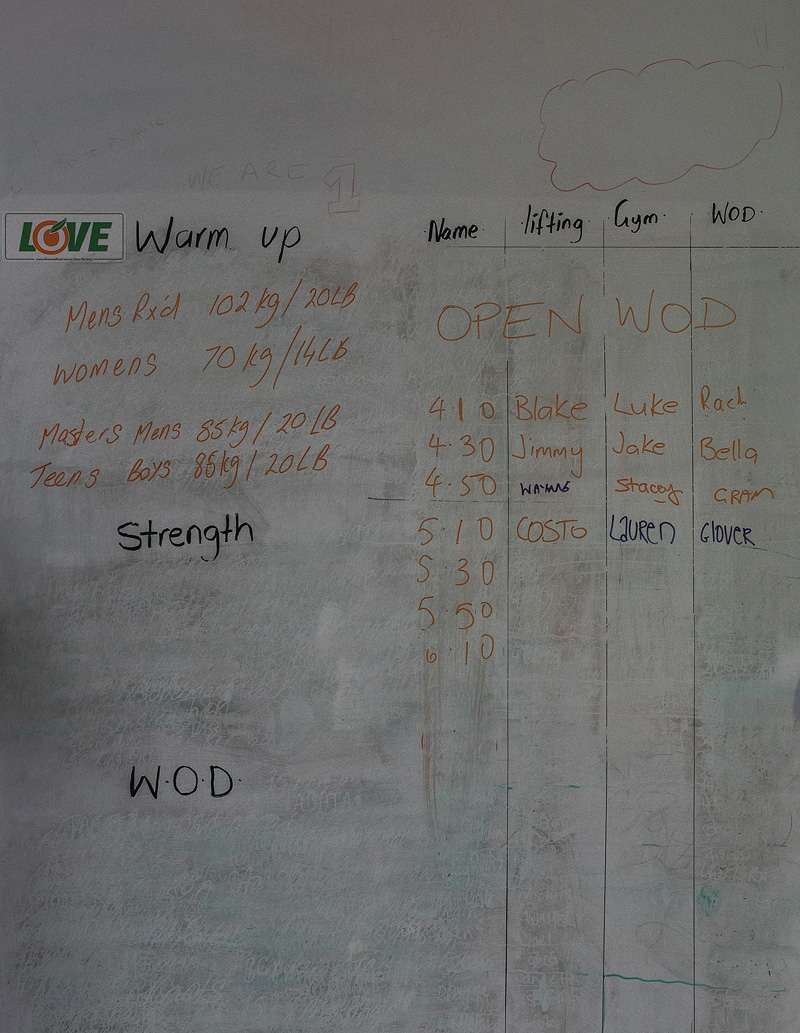 WE ARE 1
LOVE
Warm up
Mens Rx'd 102 kg / 20LB
Womens 70 kg / 14LB
Masters Mens 85kg / 20 LB
Teens Boys 85kg / 20LB
Strength
W.O.D.
Name lifting Gym WOD
OPEN WOD
4 10 Blake Luke Rach
4.30 Jimmy Jake Bella
4.50 Stacey GRAM
5.10 COSTO Lauren Glover
5.30
5.50
6.10